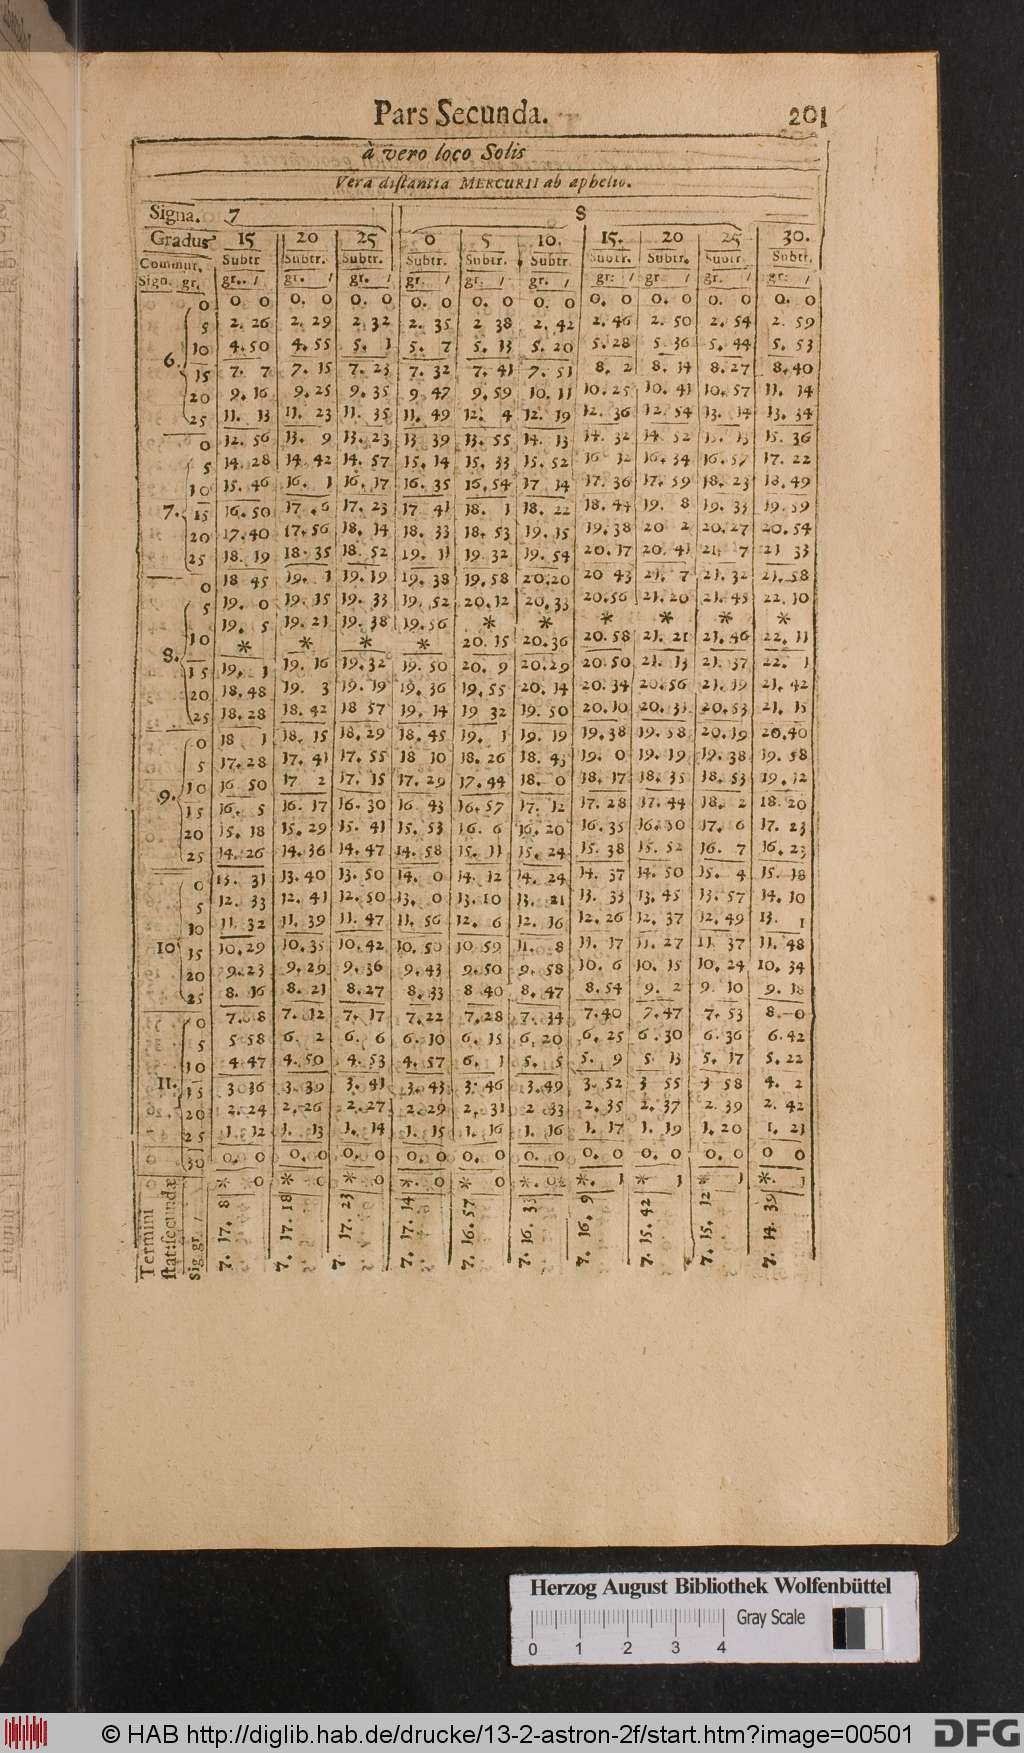 Pars Secunda. 201
à vero loco Solis
Vera distantia MERCURII ab aphelio.
Signa. 7 8
Gradus 15 20 25 0 5 10. 15. 20 25 30.
Commut. Subtr Subtr. Subtr. Subtr. Subtr. Subtr. Subtr. Subtr. Subtr. Subtr.
Sign. gr. gr. / gr. / gr. / gr. / gr. / gr. / gr: / gr / gr. / gr: /
0 0. 0 0. 0 0. 0 0. 0 0. 0 0. 0 0. 0 0. 0 0. 0 0. 0
5 2. 26 2. 29 2. 32 2. 35 2 38 2. 42 2. 46 2. 50 2. 54 2. 59
6. 10 4. 50 4. 55 5. 1 5. 7 5. 13 5. 20 5. 28 5 36 5. 44 5. 53
15 7. 7 7. 15 7. 23 7. 32 7. 41 7. 51 8. 2 8. 14 8. 27 8. 40
20 9. 16 9. 25 9. 35 9 47 9. 59 10. 11 10. 25 10. 41 10. 57 11. 14
25 11. 13 11. 23 11. 35 11. 49 12. 4 12. 19 12. 36 12. 54 13. 14 13. 34
0 12. 56 13. 9 13. 23 13 39 13. 55 14. 13 14. 32 14 52 15. 13 15. 36
5 14. 28 14. 42 14. 57 15. 14 15. 33 15. 52 16 12 16. 34 16. 57 17. 22
10 15. 46 16. 1 16. 17 16. 35 16. 54 17 14 17. 36 17. 59 18. 23 18. 49
7. 15 16. 50 17. 6 17. 23 17 41 18. 1 18. 22 18. 44 19. 8 19. 33 19. 59
20 17. 40 17. 56 18. 14 18. 33 18. 53 19. 15 19. 38 20 2 20. 27 20. 54
25 18. 19 18. 35 18. 52 19. 11 19. 32 19. 54 20. 17 20. 41 21. 7 21 33
0 18 45 19. 1 19. 19 19. 38 19. 58 20. 20 20 43 21. 7 21. 32 21. 58
5 19. 0 19. 15 19. 33 19. 52 20. 12 20. 33 20. 56 21. 20 21. 45 22. 10
10 19. 5 19. 21 19. 38 19. 56 * * * * * *
* * * * 20. 15 20. 36 20. 58 21. 21 21. 46 22. 11
8. 15 19. 1 19. 16 19. 32 19. 50 20. 9 20. 29 20. 50 21. 13 21. 37 22. 1
20 18. 48 19. 3 19. 19 19. 36 19. 55 20. 14 20. 34 20. 56 21. 19 21. 42
25 18. 28 18. 42 18 57 19. 14 19 32 19. 50 20. 10 20. 31 20. 53 21. 15
0 18 1 18. 15 18. 29 18. 45 19. 1 19. 19 19. 38 19. 58 20. 19 20. 40
5 17. 28 17. 41 17. 55 18 10 18. 26 18. 43 19. 0 19. 19 19. 38 19. 58
10 16 50 17 2 17. 15 17. 29 17. 44 18. 0 18. 17 18. 35 18. 53 19. 12
9. 15 16. 5 16. 17 16. 30 16 43 16. 57 17. 12 17. 28 17. 44 18. 2 18. 20
20 15. 18 15. 29 15. 41 15. 53 16. 6 16. 20 16. 35 16. 50 17. 6 17. 23
25 14. 26 14. 36 14. 47 14. 58 15. 11 15. 24 15. 38 15. 52 16. 7 16. 23
0 13. 31 13. 40 13. 50 14. 0 14. 12 14. 24 14. 37 14. 50 15. 4 15. 18
5 12. 33 12. 41 12. 50 13. 0 13. 10 13. 21 13. 33 13. 45 13. 57 14. 10
10 11. 32 11. 39 11. 47 11. 56 12. 6 12. 16 12. 26 12. 37 12. 49 13. 1
10 15 10. 29 10. 35 10. 42 10. 50 10 59 11. 8 11. 17 11. 27 11 37 11. 48
20 9. 23 9. 29 9. 36 9. 43 9. 50 9. 58 10. 6 10. 15 10. 24 10. 34
25 8. 16 8. 21 8. 27 8. 33 8 40 8. 47 8. 54 9. 2 9. 10 9. 18
0 7. 8 7. 12 7. 17 7. 22 7. 28 7. 34 7. 40 7. 47 7. 53 8. 0
5 5 58 6. 2 6. 6 6. 10 6. 15 6. 20 6. 25 6. 30 6. 36 6. 42
10 4 47 4. 50 4. 53 4. 57 6. 1 5. 5 5. 9 5. 13 5. 17 5. 22
11. 15 3 36 3. 39 3. 41 3. 43 3. 46 3. 49 3. 52 3 55 3 58 4. 2
20 2. 24 2. 26 2. 27 2. 29 2. 31 2 33 2. 35 2. 37 2. 39 2. 42
25 1. 12 1. 13 1. 14 1. 15 1. 16 1. 16 1. 17 1. 19 1. 20 1. 21
30 0. 0 0. 0 0. 0 0. 0 0. 0 0. 0 0. 0 0. 0 0. 0 0 0
* 0 * 0 * 0 * 0 * 0 *. 0 *. 1 * 1 * 1 *. 1
Termini stat: secundæ Sig. gr. / 7. 17. 8 7. 17. 18 7 17. 23 7. 17. 14 7. 16. 57 7. 16. 33 7. 16. 9 7. 15. 42 7. 15. 12 7. 14. 39
Herzog August Bibliothek Wolfenbüttel
Gray Scale
0 1 2 3 4
© HAB http://diglib.hab.de/drucke/13-2-astron-2f/start.htm?image=00501 DFG